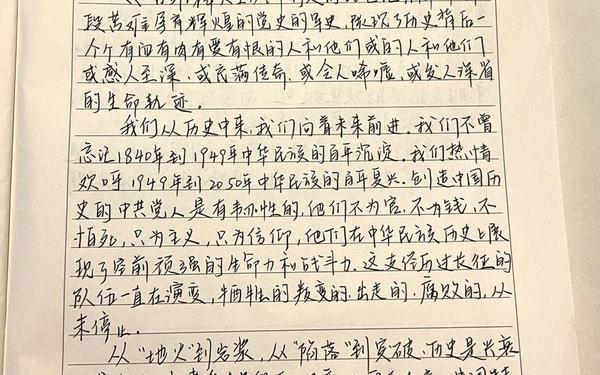 段苦难孕育辉煌的党史的导史,陈现了历史背后一
个个有血有肉有爱有恨的人和他们或的人和他们
或感人至深、或充满传奇、或令人唏嘘、或发人深省
的生命轨迹。
我们从历史中来,我们向着未来前进。我们不曾
忘记1840年到1949年中华民族的百年沉淀。我们热情
欢呼1949年到2050年中华民族的百年复兴。创造中国历
史的中共党人是有韧性的,他们不为官、不为钱、不
怕死,只为主义,只为信仰,他们在中华民族历史上展
现了空前顽强的生命力和战斗力。这支经历过长征的
队伍一直在演变,牺牲的、叛变的、出走的、腐败的,从
未停止。
从“地火”到岩浆,从“陷落”到突破,历史是兴衰